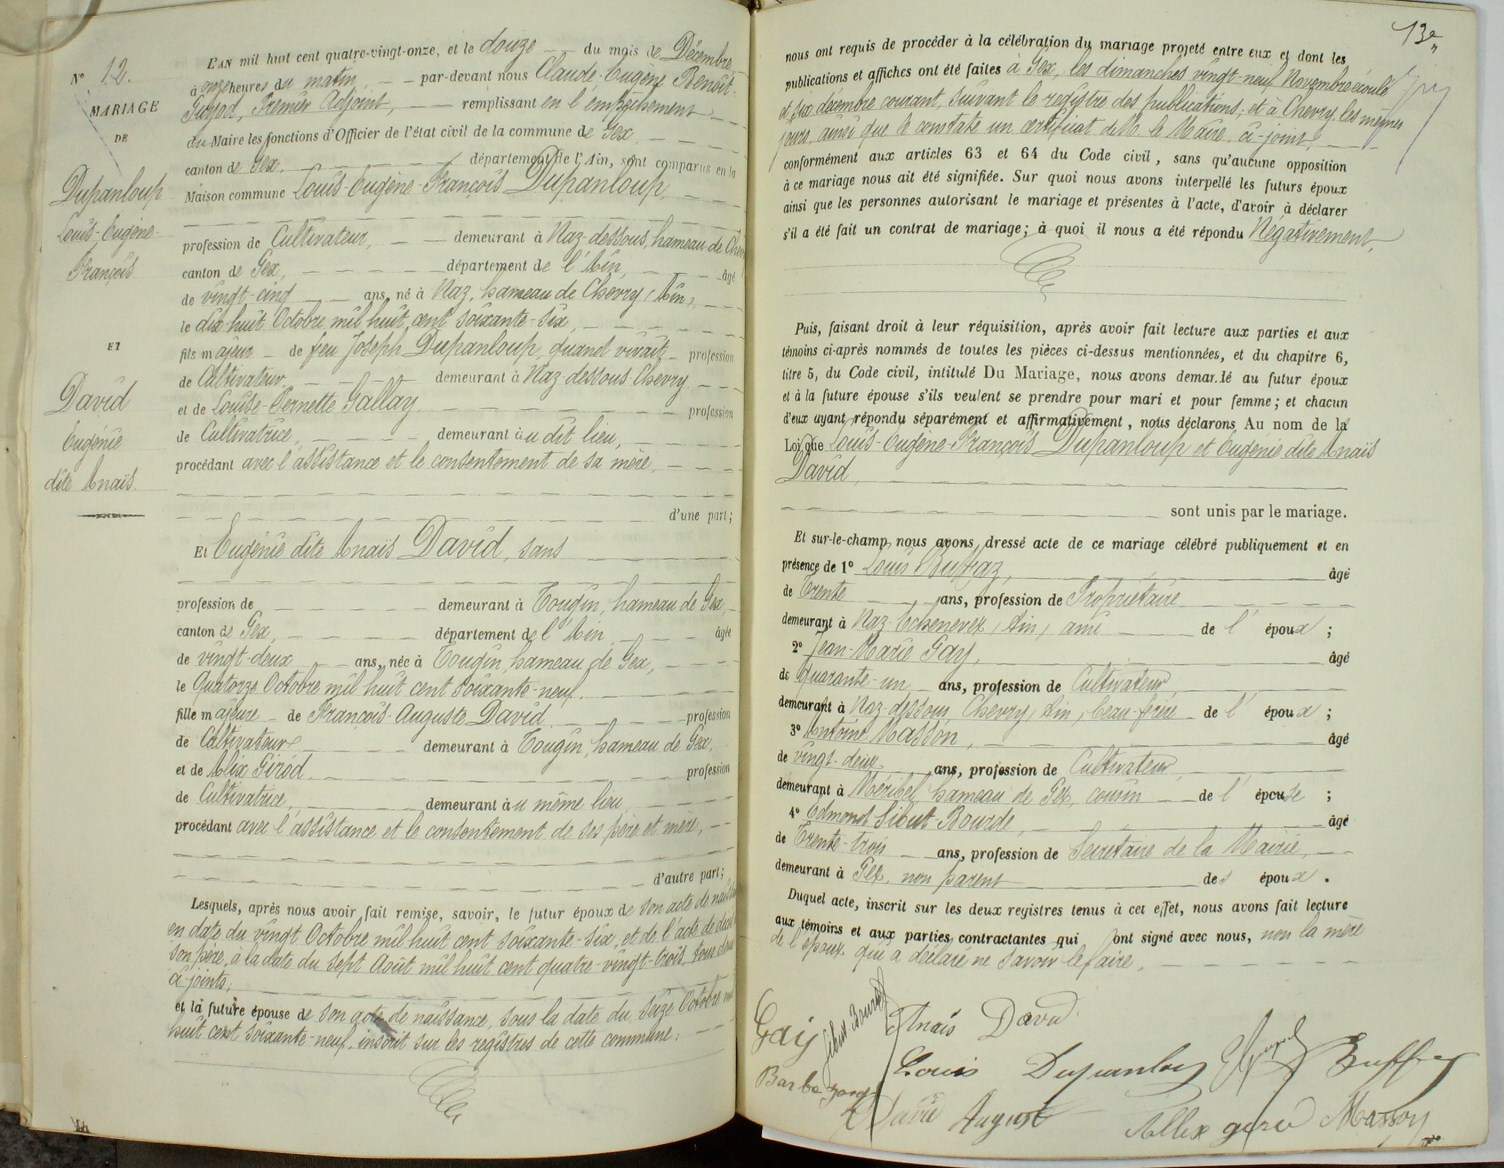 N° 12.
MARIAGE
DE
Dupanloup
Louis-Eugène-
François
ET
David
Eugénie
dite Anaïs.
L'AN mil huit cent quatre-vingt-onze, et le douze du mois de Décembre
à onze heures du matin, par-devant nous Claude-Eugène Benoît-
Guyod, Premier Adjoint, remplissant en l'empêchement
du Maire les fonctions d'Officier de l'état civil de la commune de Gex
canton de Gex, département de l'Ain, sont comparus en la
Maison commune Louis-Eugène-François Dupanloup,
profession de Cultivateur, demeurant à Naz-dessous, hameau de Chevry
canton de Gex, département de l'Ain, âgé
de vingt-cinq ans, né à Naz, hameau de Chevry (Ain),
le dix-huit Octobre mil huit cent soixante-six,
fils majeur de feu Joseph Dupanloup, quand vivait profession
de Cultivateur demeurant à Naz-dessous Chevry
et de Louise-Pernette Gallay profession
de Cultivatrice, demeurant au dit lieu,
procédant avec l'assistance et le consentement de sa mère,
d'une part;
Et Eugénie dite Anaïs David, sans
profession de demeurant à Tougin, hameau de Gex,
canton de Gex, département de l'Ain, âgée
de vingt-deux ans, née à Tougin, hameau de Gex,
le Quatorze Octobre mil huit cent soixante-neuf.
fille majeure de François-Auguste David profession
de Cultivateur demeurant à Tougin, hameau de Gex.
et de Alix Girod profession
de Cultivatrice, demeurant au même lieu,
procédant avec l'assistance et le consentement de ses père et mère,
d'autre part;
Lesquels, après nous avoir fait remise, savoir, le futur époux de son acte de
en date du vingt Octobre mil huit cent soixante-six, et de l'acte de
son père, à la date du sept Août mil huit cent quatre-vingt-trois, tous
ci-joints;
et la future épouse de son acte de naissance, sous la date du seize Octobre mil
huit cent soixante-neuf, inscrit sur les registres de cette commune:
13e
nous ont requis de procéder à la célébration du mariage projeté entre eux et dont les
publications et affiches ont été faites à Gex, les dimanches vingt-neuf Novembre écoulé
et six décembre courant, suivant le registre des publications; et à Chevry les mêmes
jours ainsi que le constate un certificat de M. le Maire, ci-joint,
conformément aux articles 63 et 64 du Code civil, sans qu'aucune opposition
à ce mariage nous ait été signifiée. Sur quoi nous avons interpellé les futurs époux
ainsi que les personnes autorisant le mariage et présentes à l'acte, d'avoir à déclarer
s'il a été fait un contrat de mariage; à quoi il nous a été répondu Négativement,
Puis, faisant droit à leur réquisition, après avoir fait lecture aux parties et aux
témoins ci-après nommés de toutes les pièces ci-dessus mentionnées, et du chapitre 6,
titre 5, du Code civil, intitulé Du Mariage, nous avons demandé au futur époux
et à la future épouse s'ils veulent se prendre pour mari et pour femme; et chacun
d'eux ayant répondu séparément et affirmativement, nous déclarons Au nom de la
Loi que Louis-Eugène-François Dupanloup et Eugénie dite Anaïs
David,
sont unis par le mariage.
Et sur-le-champ nous avons dressé acte de ce mariage célébré publiquement et en
présence de 1° Louis Buffaz, âgé
de Trente ans, profession de Propriétaire
demeurant à Naz Echenevex (Ain) ami de l'époux;
2° Jean-Marie Gay, âgé
de quarante-un ans, profession de Cultivateur
demeurant à Naz-dessous Chevry, Ain, beau-frère de l'époux;
3° Antoine Masson, âgé
de vingt-deux ans, profession de Cultivateur
demeurant à Méribel, hameau de Gex, cousin de l'épouse;
4° Edmond Sibut-Bourde, âgé
de Trente-trois ans, profession de Secrétaire de la Mairie,
demeurant à Gex, non parent des époux.
Duquel acte, inscrit sur les deux registres tenus à cet effet, nous avons fait lecture
aux témoins et aux parties contractantes qui ont signé avec nous, non la mère
de l'époux qui a déclaré ne savoir le faire.
Gay Sibut-Bourde Anaïs David
Louis Dupanloup Buffaz
David August Allix girod Masson